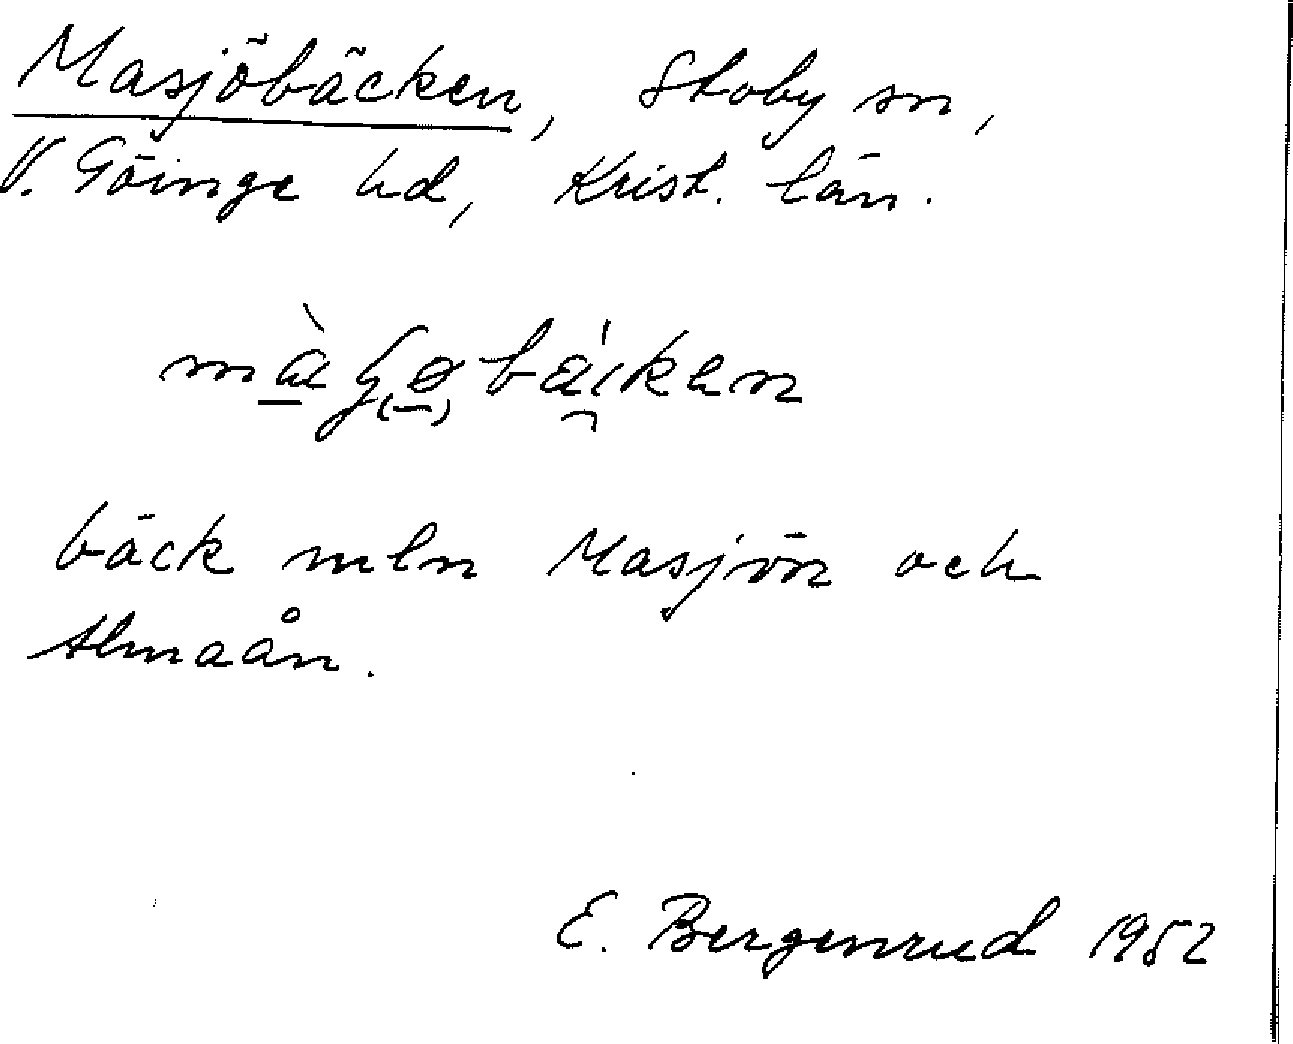 Masjöbäcken, Stoby sn,
V. Göinge hd, Krist. län.
bäck mln Masjön och
Almaån.
E. Bergenrud 1952